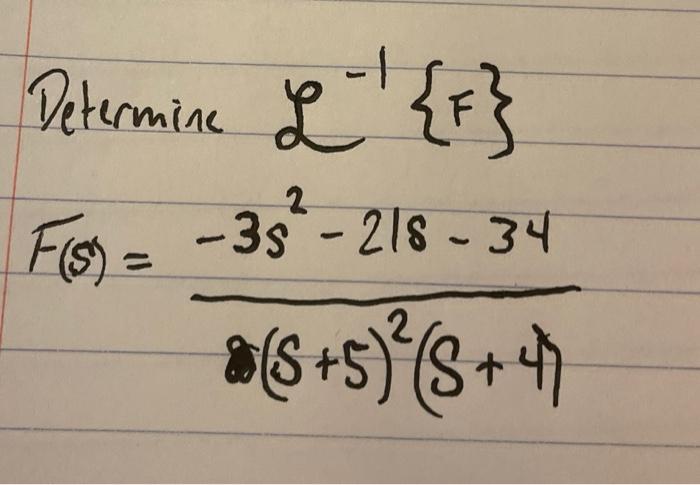 Determine ℒ⁻¹ {F}
F(s) = -3s² - 21s - 34
(S+5)²(S+4)